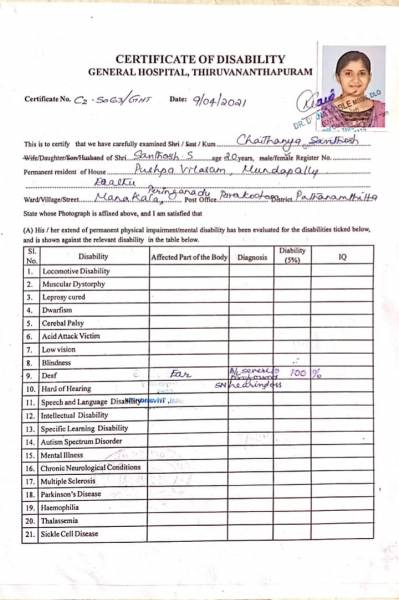 CERTIFICATE OF DISABILITY
GENERAL HOSPITAL, THIRUVANANTHAPURAM
Certificate No. C2-5063/GHT Date: 9/04/2021
This is to certify that we have carefully examined Shri / Smt / Kum Chaithanya Santhosh
Wife/Daughter/Son/Husband of Shri Santhosh S age 20 years, male/female Register No.
Permanent resident of House Pushpa Vilasam, Mundapally
Peringanadu
Ward/Village/Street Manakala, Post Office Parakootam District Pathanamthitta
State whose Photograph is affixed above, and I am satisfied that
(A) His / her extent of permanent physical impairment/mental disability has been evaluated for the disabilities ticked below,
and is shown against the relevant disability in the table below.
Sl. No. Disability Affected Part of the Body Diagnosis Diability (5%) IQ
1. Locomotive Disability
2. Muscular Dystorphy
3. Leprosy cured
4. Dwarfism
5. Cerebal Palsy
6. Acid Attack Victim
7. Low vision
8. Blindness
9. Desf Ear B/L severe to profound 100 %
10. Hard of Hearing SN hearing loss
11. Speech and Language Disability
12. Intellectual Disability
13. Specific Learning Disability
14. Autism Spectrum Disorder
15. Mental Illness
16. Chronic Neurological Conditions
17. Multiple Sclerosis
18. Parkinson's Disease
19. Haemophilia
20. Thalassemia
21. Sickle Cell Disease